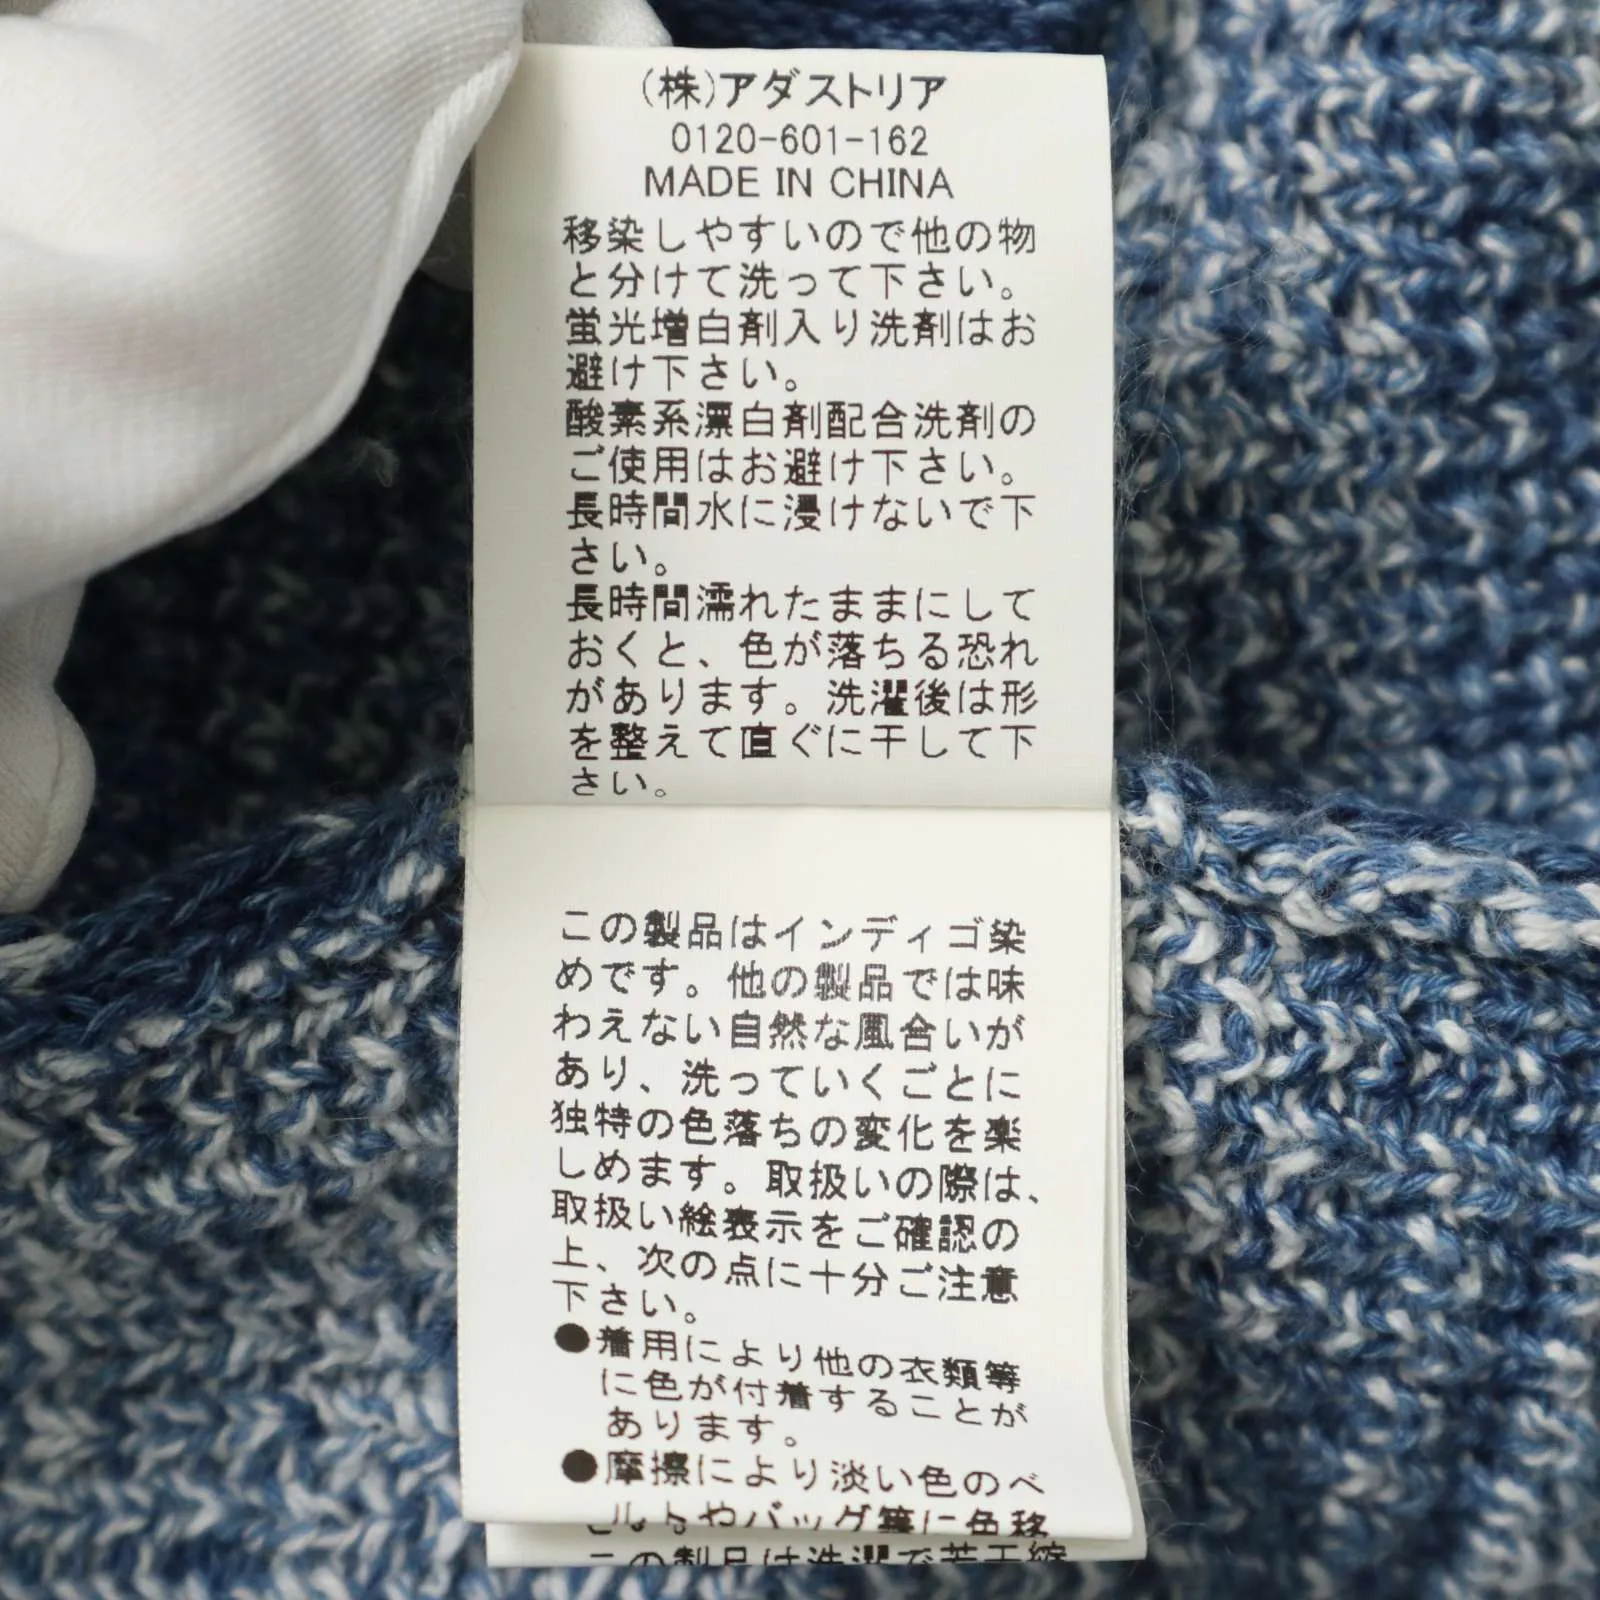 (株)アダストリア
0120-601-162
MADE IN CHINA
移染しやすいので他の物
と分けて洗って下さい。
蛍光増白剤入り洗剤はお
避け下さい。
酸素系漂白剤配合洗剤の
ご使用はお避け下さい。
長時間水に浸けないで下
さい。
長時間濡れたままにして
おくと、色が落ちる恐れ
があります。洗濯後は形
を整えて直ぐに干して下
さい。
この製品はインディゴ染
めです。他の製品では味
わえない自然な風合いが
あり、洗っていくごとに
独特の色落ちの変化を楽
しめます。取扱いの際は、
取扱い絵表示をご確認の
上、次の点に十分ご注意
下さい。
●着用により他の衣類等
に色が付着することが
あります。
●摩擦により淡い色のベ
ルトやバッグ等に色移
この製品は洗濯で若干縮